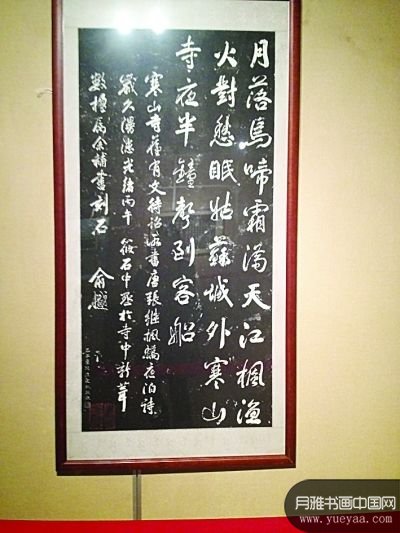 月落烏啼霜滿天江楓漁
火對愁眠姑蘇城外寒山
寺夜半鐘聲到客船
寒山寺舊有文待詔所書唐張繼楓橋夜泊詩
歲久漫漶光緒丙午筱石中丞於寺中新葺
數楹屬余補書刻石
俞樾
月雅书画中国网
www.yueyaa.com